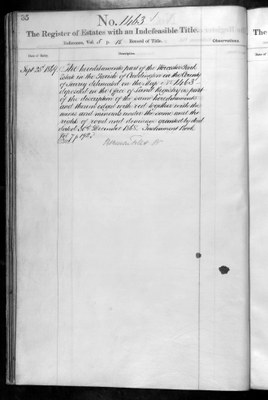 35
No. 1463
The Register of Estates with an Indefeasible Title.
Reference, Vol. 5 p. 16 Record of Title. Observations,
Date of Entry. Description.
Sept 23rd 1869 The hereditaments part of the Worcester Park
Estate in the Parish of Cuddington in the County
of Surrey delineated on the Map No 1463
deposited in the Office of Land Registry as part
of the description of the same hereditaments
and thereof edged with red together with the
mines and minerals under the same and the
right of road and drainage granted by deed
dated 30th December 1865. Instrument Book